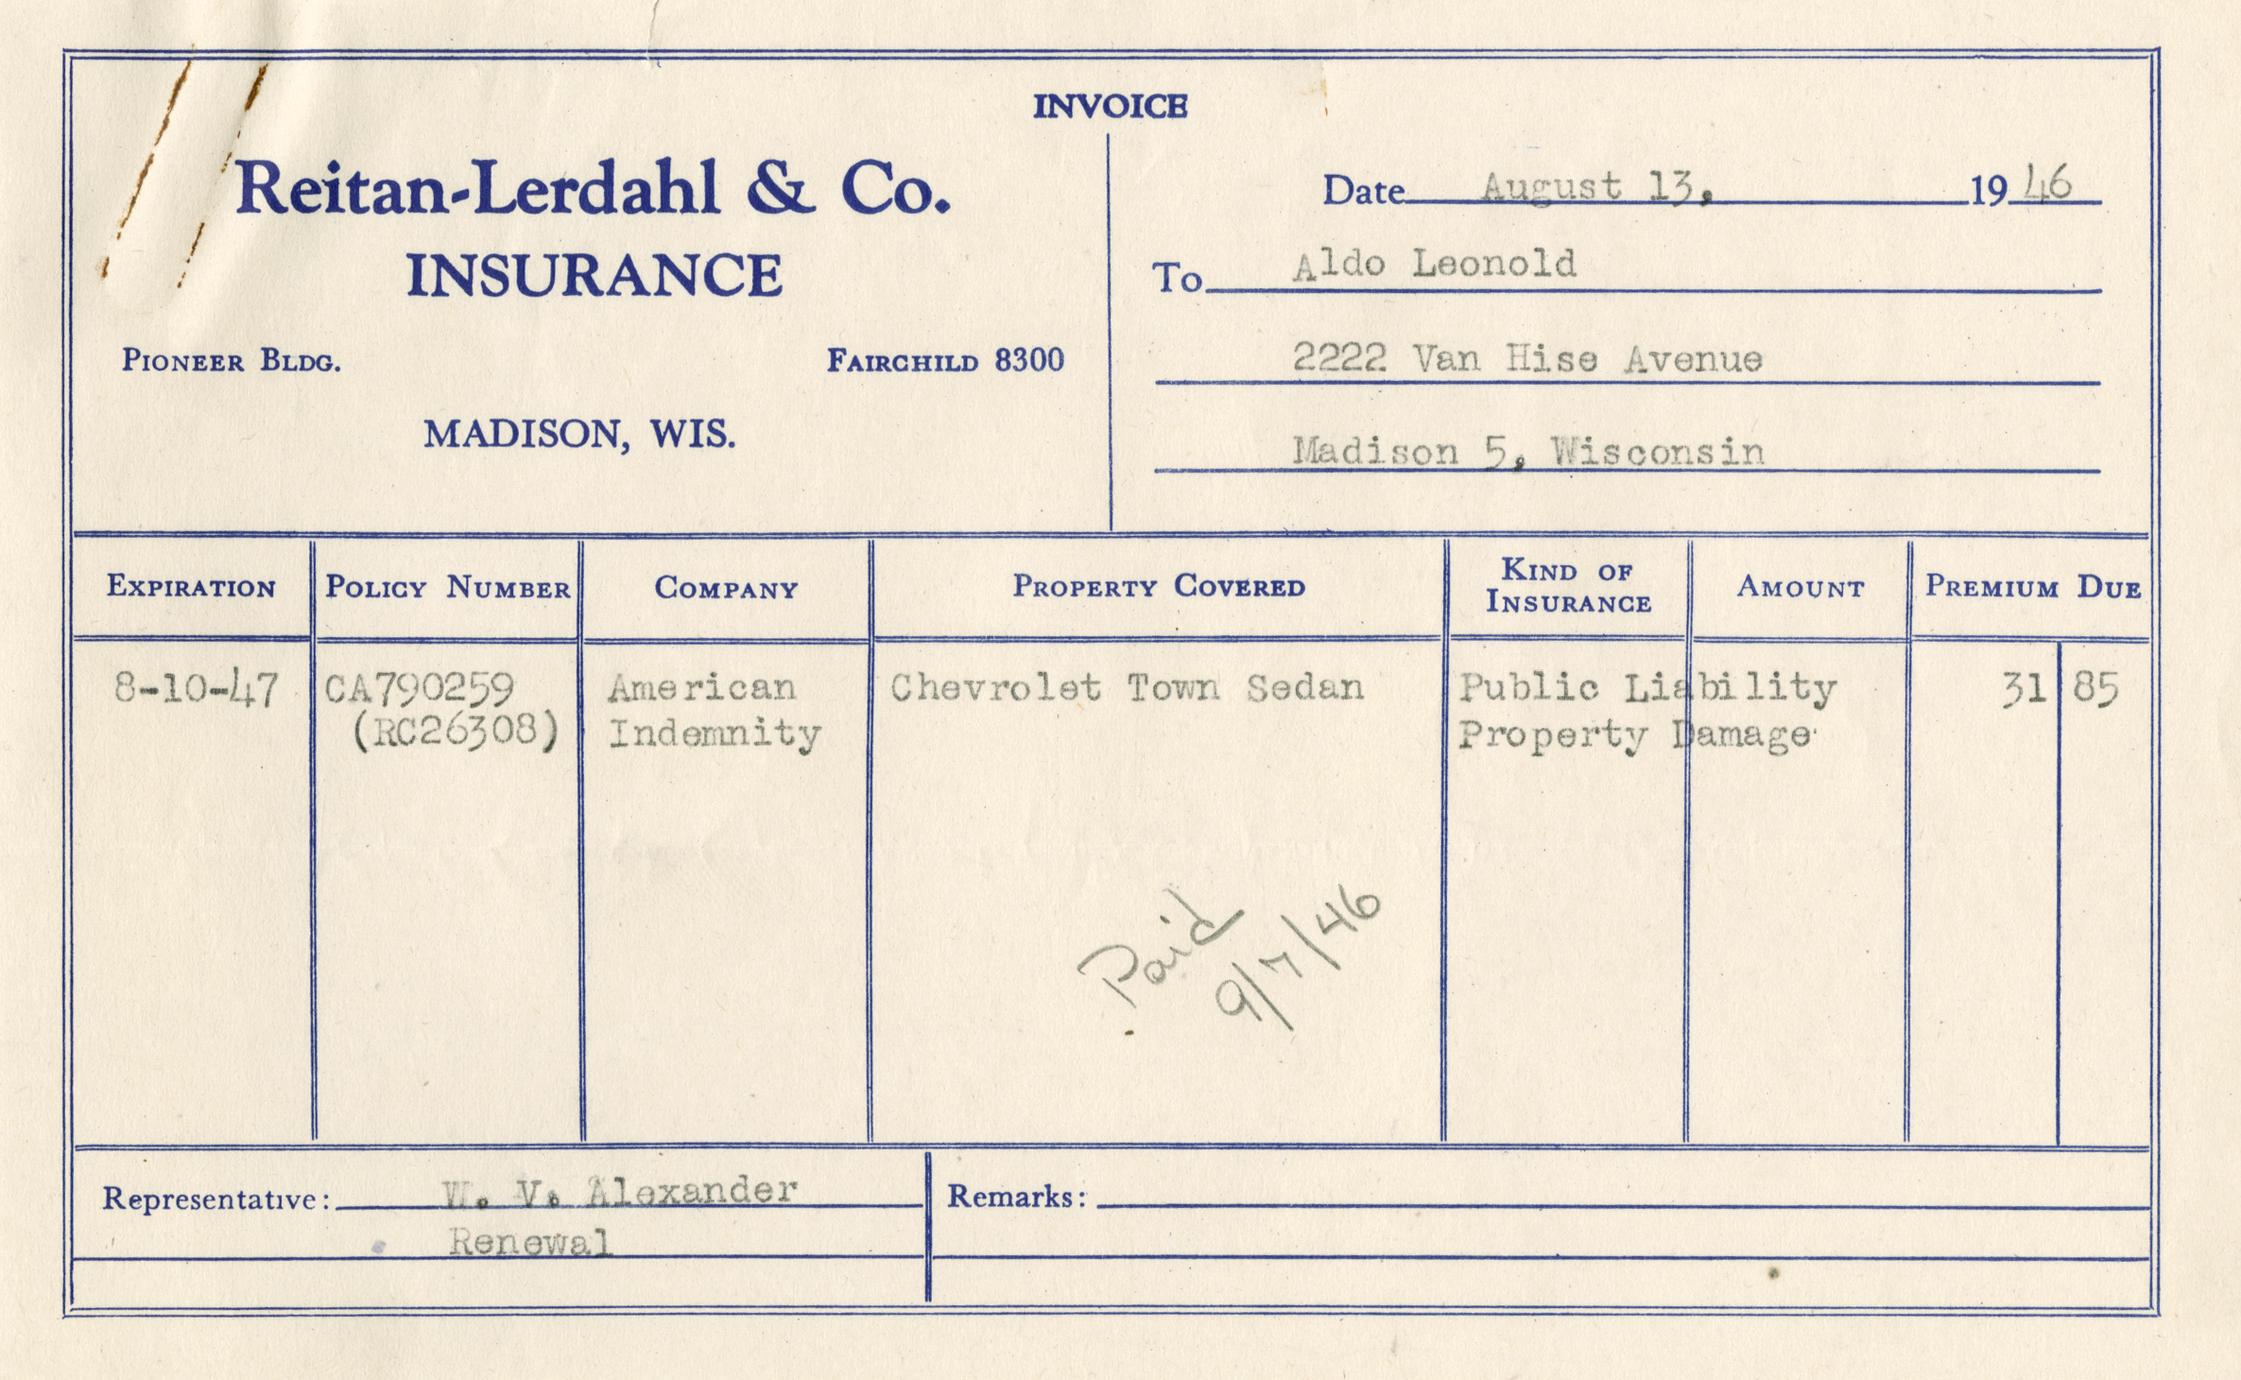 INVOICE
Reitan-Lerdahl & Co.
INSURANCE
PIONEER BLDG. FAIRCHILD 8300
MADISON, WIS.
Date August 13, 1946
To Aldo Leonold
2222 Van Hise Avenue
Madison 5, Wisconsin
EXPIRATION POLICY NUMBER COMPANY PROPERTY COVERED KIND OF INSURANCE AMOUNT PREMIUM DUE
8-10-47 CA790259 American Chevrolet Town Sedan Public Liability 31 85
(RC26308) Indemnity Property Damage
Paid
9/7/46
Representative: W. V. Alexander Remarks:
Renewal